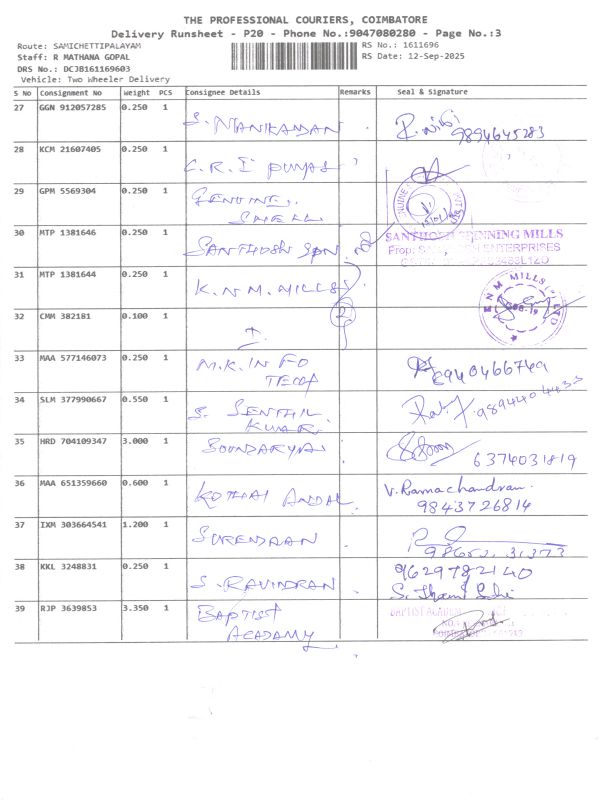 THE PROFESSIONAL COURIERS, COIMBATORE
Delivery Runsheet - P20 - Phone No.:9047080280 - Page No.:3
Route: SAMICHETTIPALAYAM
RS No.: 1611696
Staff: R MATHANA GOPAL
RS Date: 12-Sep-2025
DRS No.: DCJB161169603
Vehicle: Two Wheeler Delivery
S No Consignment No Weight PCS Consignee Details Remarks Seal & Signature
27 GGN 912057285 0.250 1
S. MANIKANDAN 9894645283
28 KCM 21607405 0.250 1
C.R.I PUMPS
29 GPM 5569304 0.250 1
GENUINE
SHELL
30 MTP 1381646 0.250 1
SANTHOSH SPN
SANTHOSH SPINNING MILLS
ENTERPRISES
31 MTP 1381644 0.250 1
K.N.M. MILLS
K N M MILLS LTD
32 CMM 382181 0.100 1
2
33 MAA 577146073 0.250 1
M.K. INFO
TECH
8940466749
34 SLM 377990667 0.550 1
S. SENTHIL
KUMAR
9894404433
35 HRD 704109347 3.000 1
SOUNDARYA
6374031819
36 MAA 651359660 0.600 1
KOTHAI ANDAL
V. Ramachandran
9843726814
37 IXM 303664541 1.200 1
SURENDRAN
38 KKL 3248831 0.250 1
S. RAVINDRAN
9629782140
39 RJP 3639853 3.350 1
BAPTIST
ACADAMY
BAPTIST ACADEMY